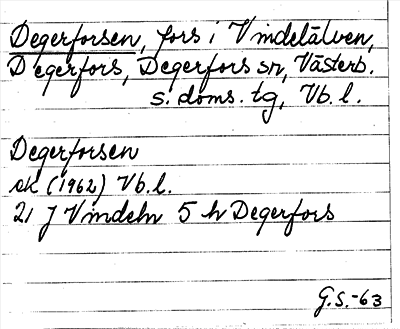 Degerforsen, fors i Vindelälven,
Degerfors, Degerfors sn, Västerb.
s. doms. tg, Vb. l.
Degerforsen
ek (1962) Vb. l.
21 J Vindeln 5 h Degerfors
G.S.-63